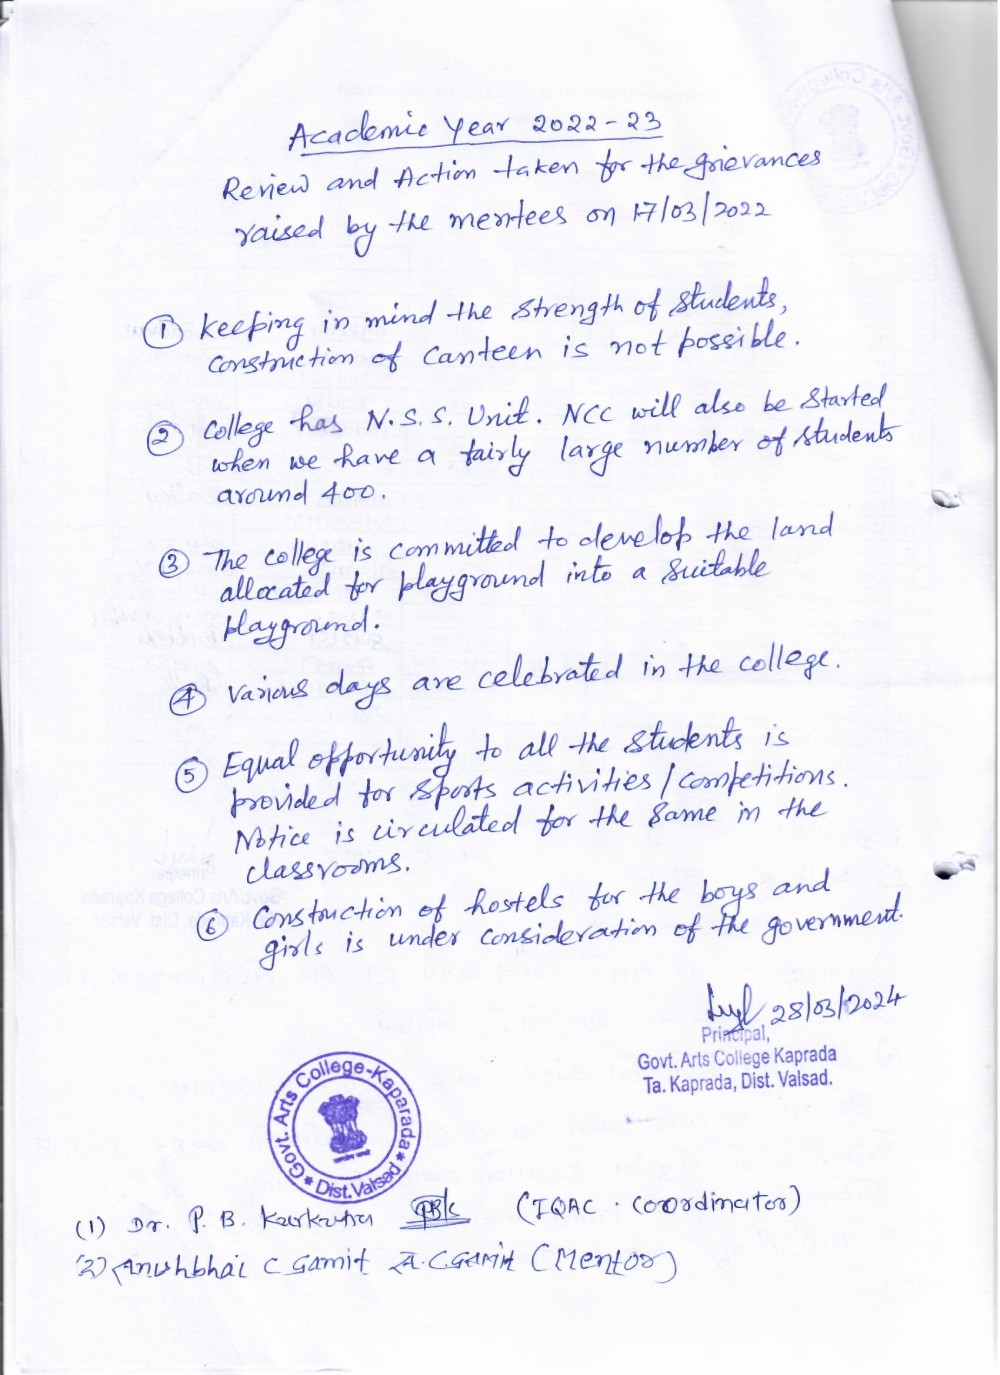 Academic Year 2022-23
Review and Action taken for the grievances
raised by the mentees on 17/03/2022
① Keeping in mind the strength of students,
construction of canteen is not possible.
② College has N.S.S. Unit. NCC will also be started
when we have a fairly large number of students
around 400.
③ The college is committed to develop the land
allocated for playground into a suitable
playground.
④ Various days are celebrated in the college.
⑤ Equal opportunity to all the students is
provided for sports activities / competitions.
Notice is circulated for the same in the
classrooms.
⑥ Construction of hostels for the boys and
girls is under consideration of the government.
28/03/2024
Principal,
Govt. Arts College Kaprada
Ta. Kaprada, Dist. Valsad.
Govt. Arts College-Kaparada
Dist. Valsad
(1) Dr. P. B. (IQAC. coordinator)
(2) C Gamit A.C.GAMIT (Mentor)